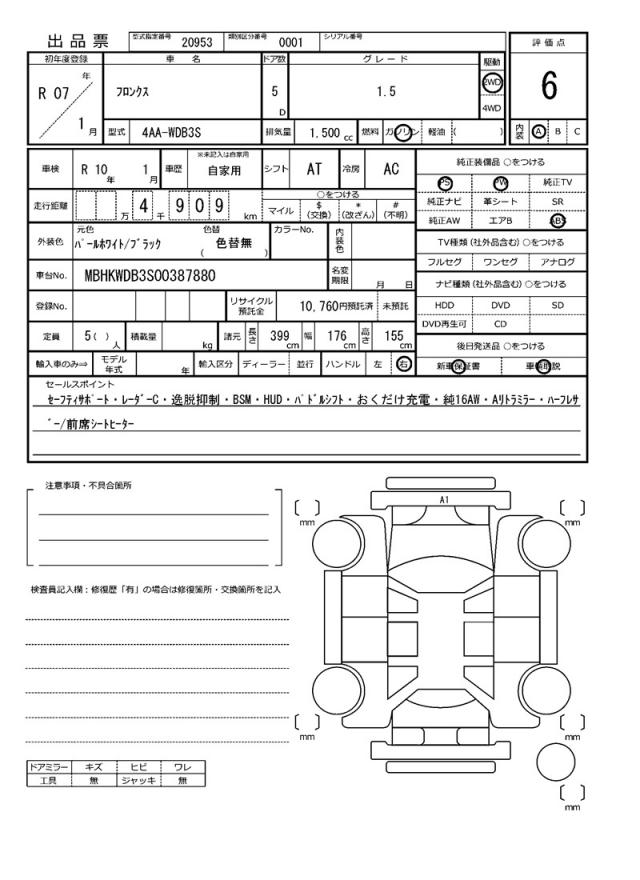 出品票 型式指定番号 20953 類別区分番号 0001 シリアル番号
評価点
初年度登録 車名 ドア数 グレード 駆動
R 07 年 1 月 フロンクス 5 D 1.5 2WD 4WD
6
型式 4AA-WDB3S 排気量 1.500 cc 燃料 ガソリン 軽油 ( )
内装 A B C
車検 R 10 年 1 月 車歴 ※未記入は自家用 自家用 シフト AT 冷房 AC
走行距離 万 4 千 9 0 9 km
○をつける
マイル $(交換) *(改ざん) #(不明)
外装色 元色 パールホワイト/ブラック 色替 ( 色替無 ) カラーNo. 内装色
車台No. MBHKWDB3S00387880 名変期限 月 日
登録No. リサイクル預託金 10,760円預託済 未預託
定員 5( ) 人 積載量 kg 諸元 長さ 399 cm 幅 176 cm 高さ 155 cm
輸入車のみ⇒ モデル年式 年 輸入区分 ディーラー 並行 ハンドル 左 右
純正装備品 ○をつける
PS PW 純正TV
純正ナビ 革シート SR
純正AW エアB ABS
TV種類 (社外品含む) ○をつける
フルセグ ワンセグ アナログ
ナビ種類 (社外品含む) ○をつける
HDD DVD SD
DVD再生可 CD
後日発送品 ○をつける
新車保証書 車輌取説
セールスポイント
セーフティサポート・レーダーC・逸脱抑制・BSM・HUD・パドルシフト・おくだけ充電・純16AW・Aリトラミラー・ハーフレザ
ー/前席シートヒーター
注意事項・不具合箇所
検査員記入欄:修復歴「有」の場合は修復箇所・交換箇所を記入
ドアミラー キズ ヒビ ワレ
工具 無 ジャッキ 無
A1
[ ] mm
[ ] mm
[ ] mm
[ ] mm
[ ] mm